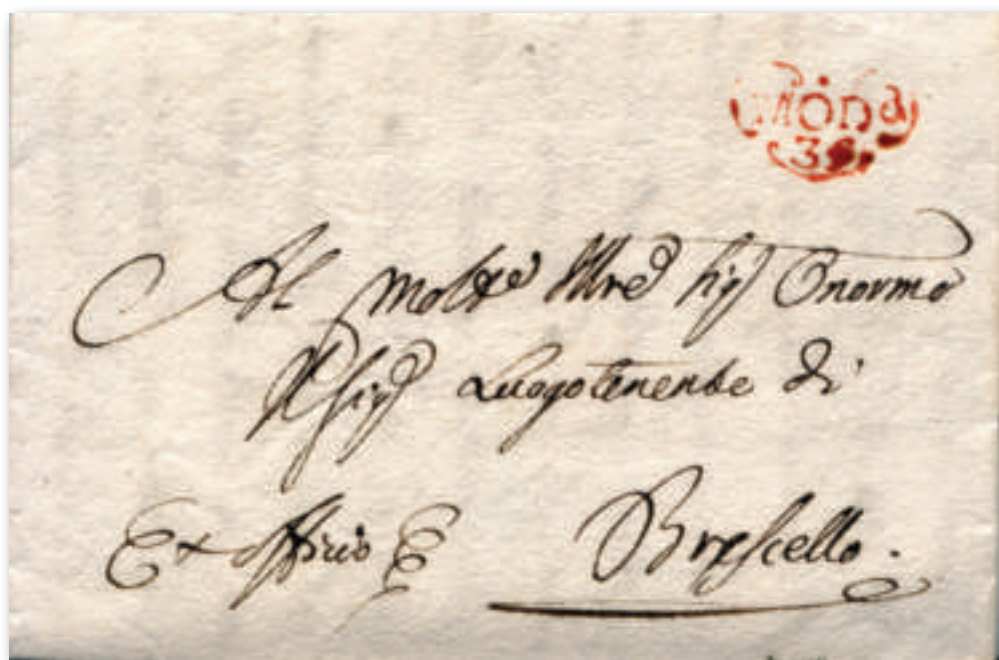 Al Molto Illre Sig Onormo
Il Sig Luogotenente di
Ex officio Brescello.